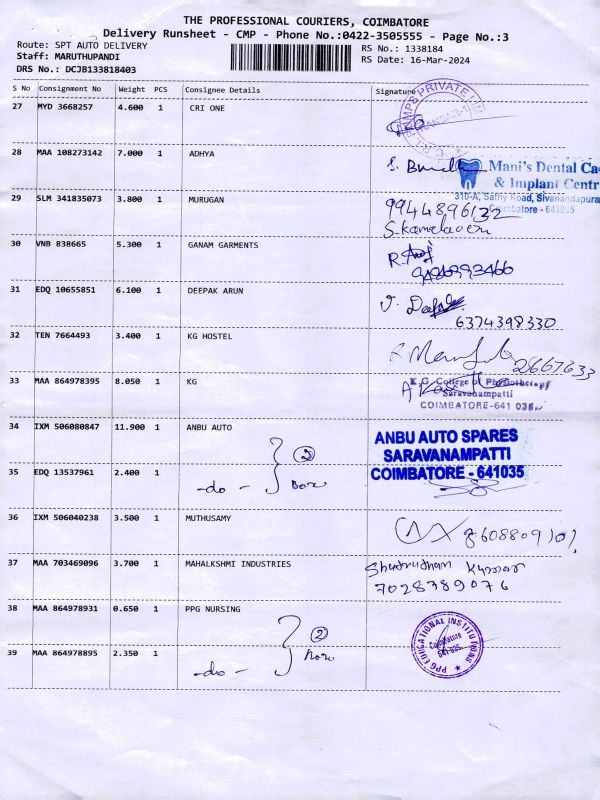 THE PROFESSIONAL COURIERS, COIMBATORE
Delivery Runsheet - CMP - Phone No.:0422-3505555 - Page No.:3
Route: SPT AUTO DELIVERY
Staff: MARUTHUPANDI
DRS No.: DCJB133818403
RS No.: 1338184
RS Date: 16-Mar-2024
S No Consignment No Weight PCS Consignee Details Signature
27 MYD 3668257 4.600 1 CRI ONE
28 MAA 108273142 7.000 1 ADHYA
Mani's Dental Ca
& Implant Centr
310-A, Sathy Road, Sivanandapura
Coimbatore - 641035
29 SLM 341835073 3.800 1 MURUGAN 9944896132
30 VNB 838665 5.300 1 GANAM GARMENTS
31 EDQ 10655851 6.100 1 DEEPAK ARUN
6374398330
32 TEN 7664493 3.400 1 KG HOSTEL 2667633
33 MAA 864978395 8.050 1 KG
K.G. College of Physiotherapy
Saravanampatti
COIMBATORE-641 035
34 IXM 506080847 11.900 1 ANBU AUTO
ANBU AUTO SPARES
SARAVANAMPATTI
COIMBATORE - 641035
35 EDQ 13537961 2.400 1 -do- 2 Box
36 IXM 506040238 3.500 1 MUTHUSAMY
37 MAA 703469096 3.700 1 MAHALKSHMI INDUSTRIES
Kumar
7028789076
38 MAA 864978931 0.650 1 PPG NURSING
PPG EDUCATIONAL INSTITUTIONS
Coimbatore
641 035
39 MAA 864978895 2.350 1 -do- 2 Box